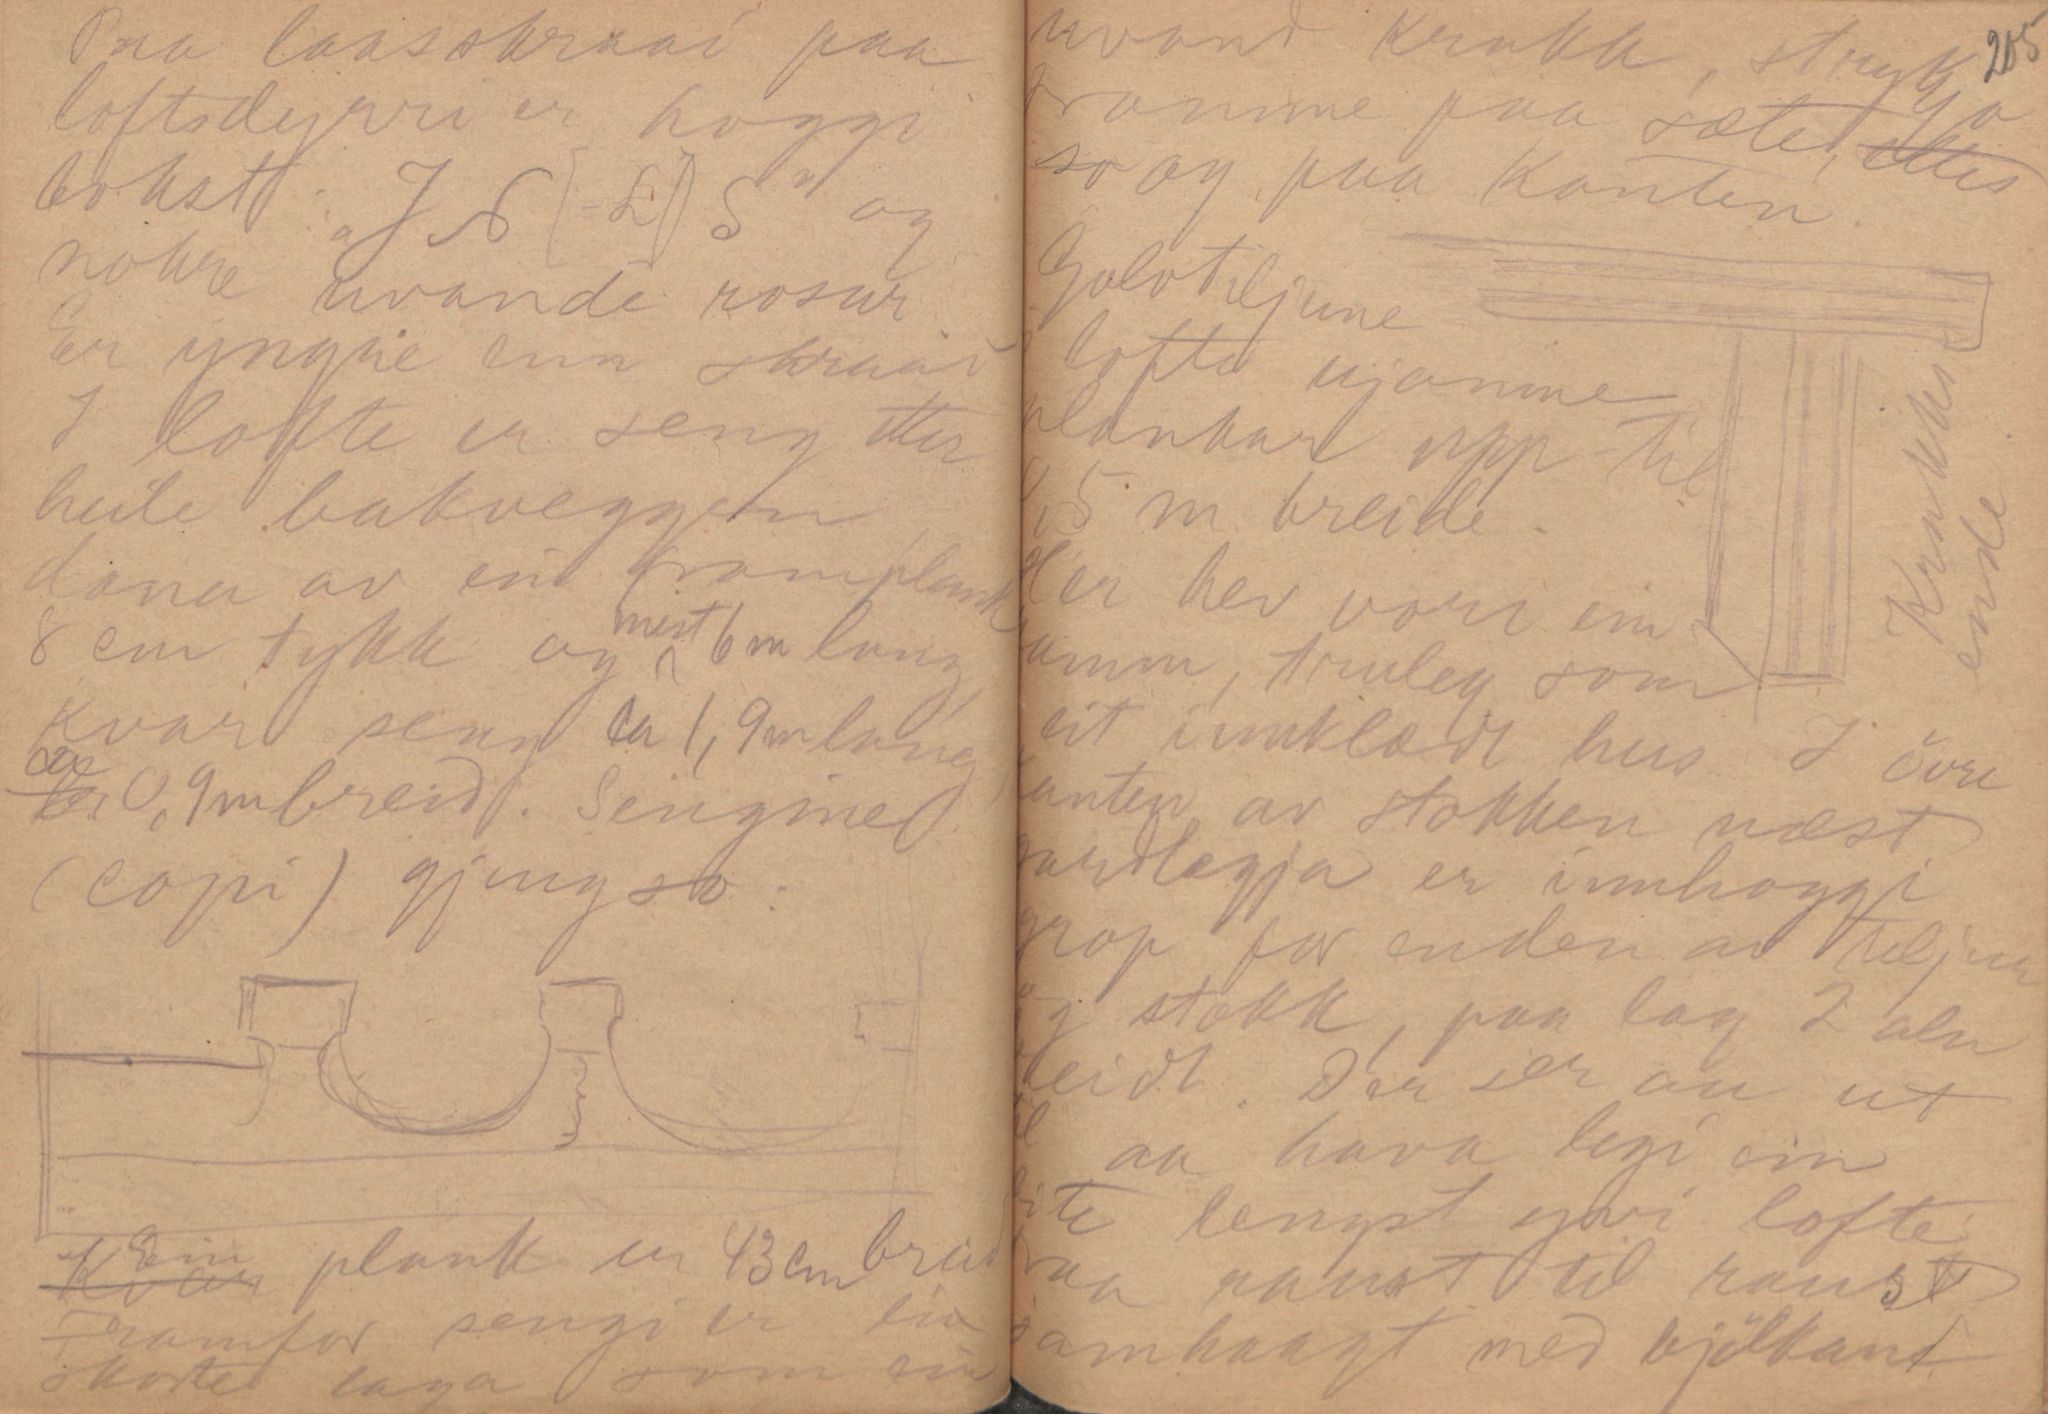 Paa laasskraai paa
loftsdyrri er hoggi
bokst: „J N [-L] S" og
nokre uvande rosur.
Er yngrie enn skraai
I lofte er seng etter
heile bakveggen,
dana av ein framplank
8 cm tykk og mist 6 m lang,
Kvar seng ca 1,9 m lang,
ca 0,9 m breid. Sengine
(copi) gjeng so:
Ein plank er 43 cm breid
Framfor sengi er ein
skorte laga som ein
205
uvand Krakk, strykja
framme paa sæte,
so og paa Kanten.
Golvtiljune
lofte ujamne
plankar upp-til
0,5 m breide.
Der hev vori ein
ramm, truleg som
eit innklædt hus. I övre
kanten av stokken næst
aurdlegja er innhoggi
grop for enden av tiljur
og stokk, paa lag 2 aln
breidt. Der ser au ut
til aa hava legi ein
bite lengst yvi lofte
fraa raust til raust
samhaagt med bjölkand
Krakken
ende